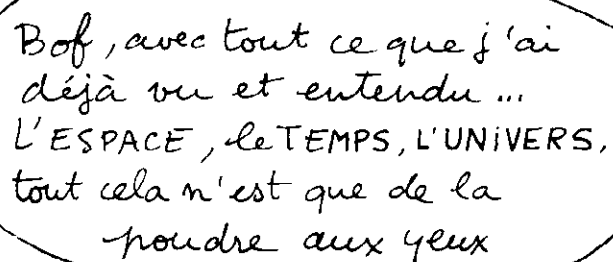 Bof, avec tout ce que j'ai
déjà vu et entendu...
L'ESPACE, le TEMPS, L'UNIVERS,
tout cela n'est que de la
poudre aux yeux